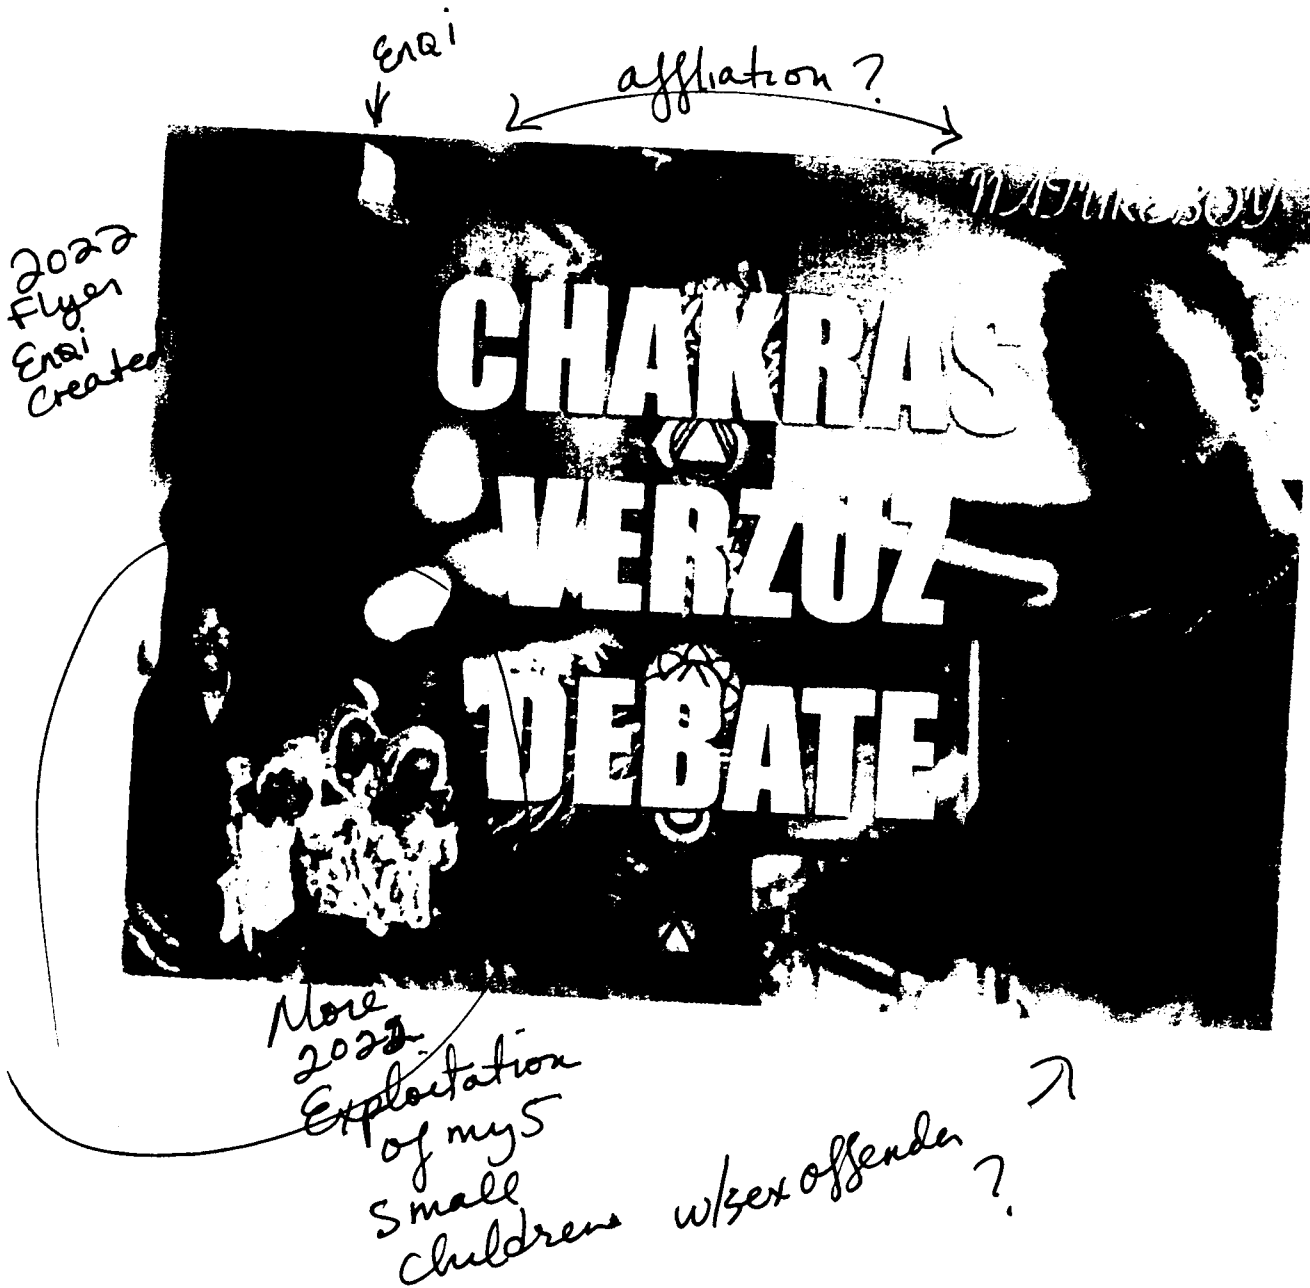 Enqi
affliation ?
NATUREBOY
2022
Flyer
Enqi
created
CHAKRAS
VERZUZ
DEBATE
More
2022
Exploitation
of my 5
small
childrens w/sex offender ?